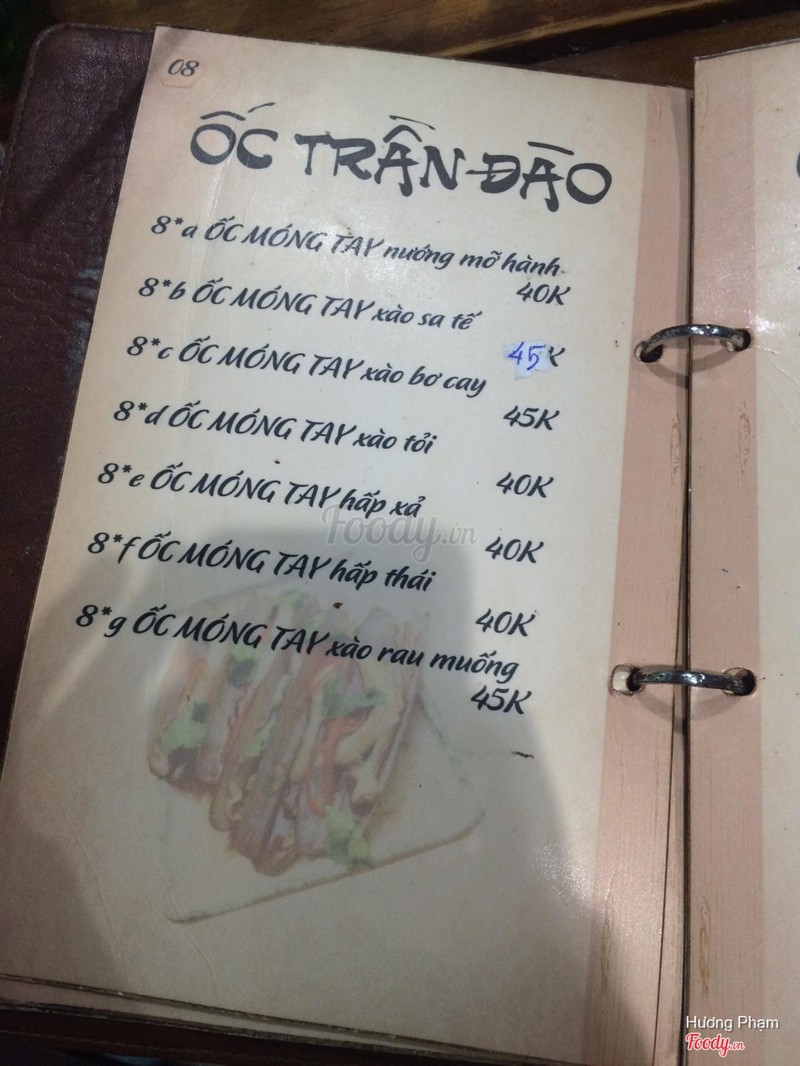 08
ỐC TRẦN ĐÀO
8*a ỐC MÓNG TAY nướng mỡ hành
40K
8*b ỐC MÓNG TAY xào sa tế
45K
8*c ỐC MÓNG TAY xào bơ cay
45K
8*d ỐC MÓNG TAY xào tỏi
40K
8*e ỐC MÓNG TAY hấp xả
40K
8*f ỐC MÓNG TAY hấp thái
40K
8*g ỐC MÓNG TAY xào rau muống
45K
Foody.vn
Hương Phạm
Foody.vn